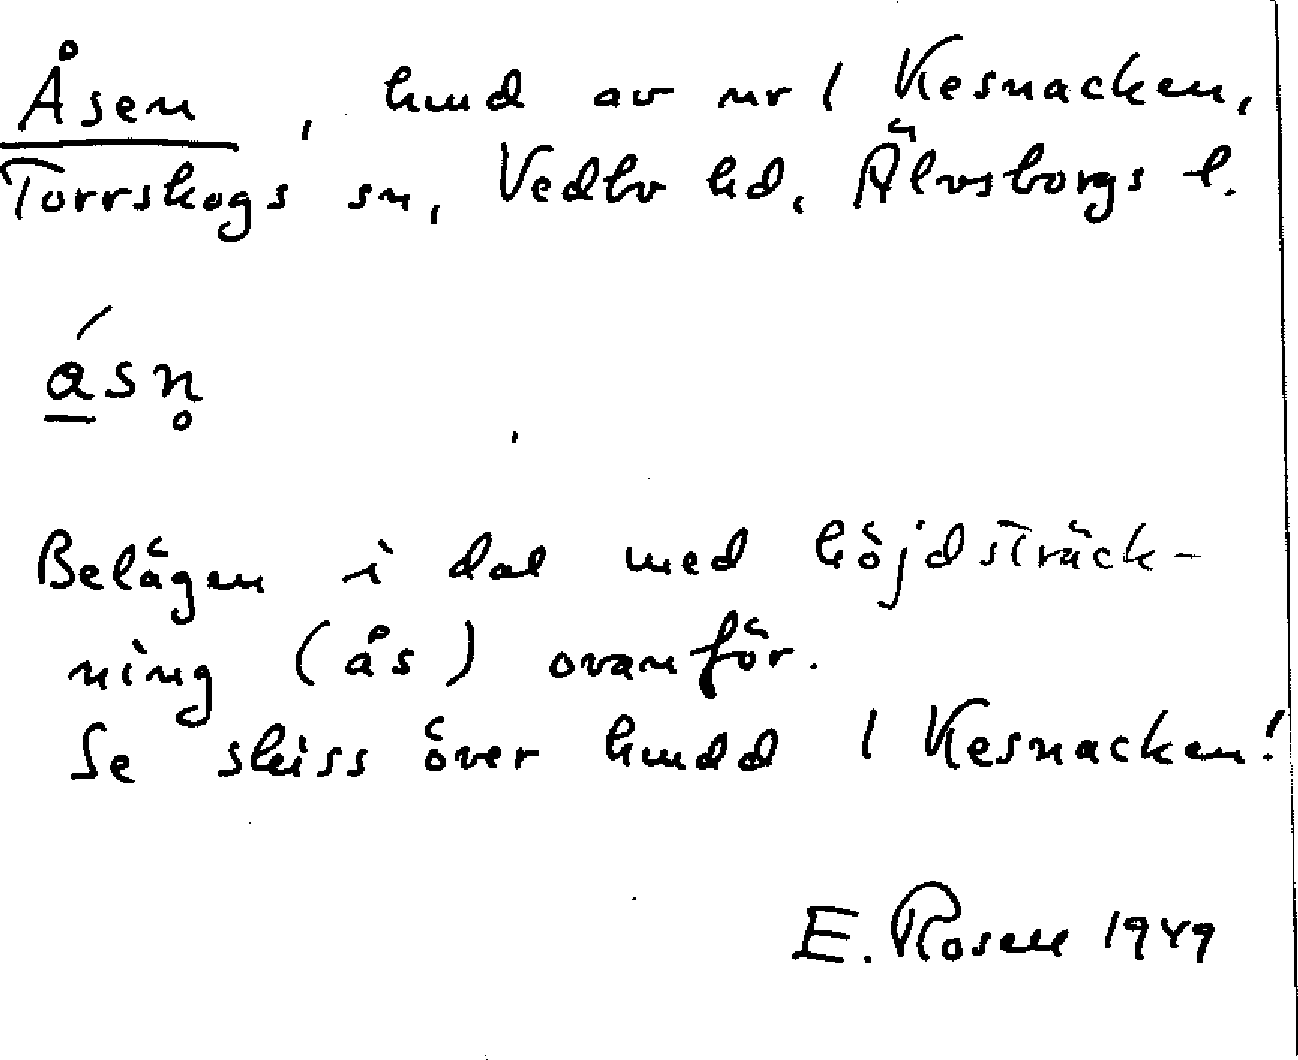 Åsen, hmd av nr 1 Kesnacken,
Torrskogs sn, Vedbo hd, Älvsborgs l.
á̱sn̥
Belägen i dal med höjdsträck-
ning (ås) ovanför.
Se skiss över hmdd 1 Kesnacken!
E. Rosell 1949